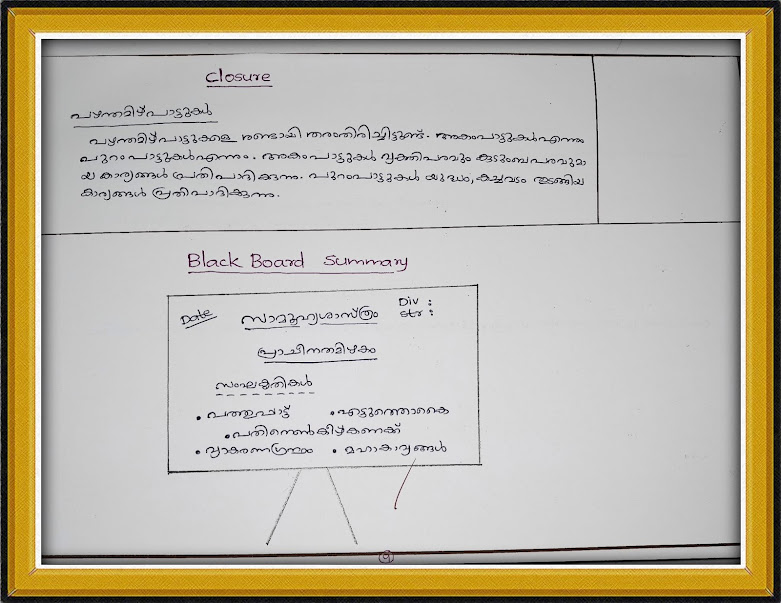 Closure
പഴന്തമിഴ്പാട്ടുകൾ
പഴന്തമിഴ്പാട്ടുകളെ രണ്ടായി തരംതിരിച്ചിട്ടുണ്ട്. അകംപാട്ടുകൾ എന്നും
പുറംപാട്ടുകൾ എന്നും. അകംപാട്ടുകൾ വ്യക്തിപരവും കുടുംബപരവുമാ
യ കാര്യങ്ങൾ പ്രതിപാദിക്കുന്നു. പുറംപാട്ടുകൾ യുദ്ധം, കച്ചവടം തുടങ്ങിയ
കാര്യങ്ങൾ പ്രതിപാദിക്കുന്നു.
Black Board Summary
Date സാമൂഹ്യശാസ്ത്രം Div :
str :
പ്രാചീനതമിഴകം
സംഘകൃതികൾ
• പത്തുപാട്ട് • എട്ടുത്തൊകൈ
• പതിനെൺകീഴ്കണക്ക്
• വ്യാകരണഗ്രന്ഥം • മഹാകാവ്യങ്ങൾ
9